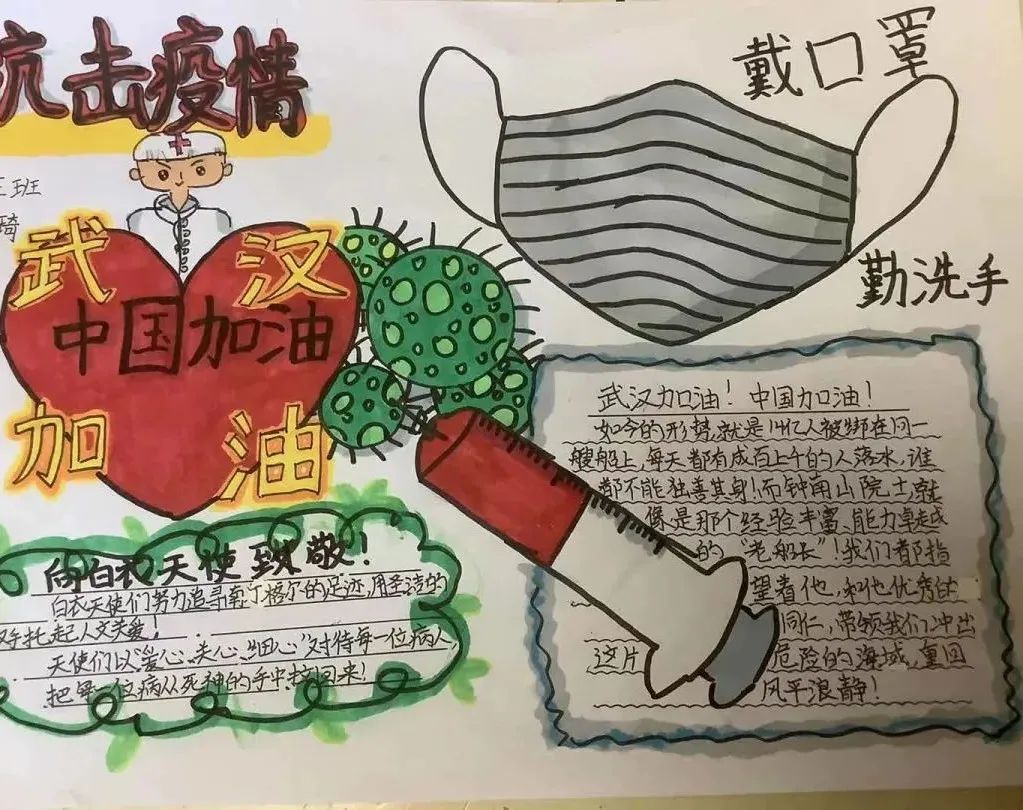 抗击疫情
戴口罩
三班
琦
武汉
中国加油
加油
勤洗手
向白衣天使致敬!
白衣天使们努力追寻南丁格尔的足迹,用圣洁的
双手托起人文关爱!
天使们以"爱心、关心、细心"对待每一位病人,
把每一位病人从死神的手中拉回来!
武汉加油! 中国加油!
如今的形势,就是14亿人被绑在同一
艘船上,每天都有成百上千的人落水,谁
都不能独善其身!而钟南山院士,就
像是那个经验丰富、能力卓越
的"老船长"!我们都指
望着他,和他优秀的
同仁,带领我们冲出
这片 危险的海域,重回
风平浪静!